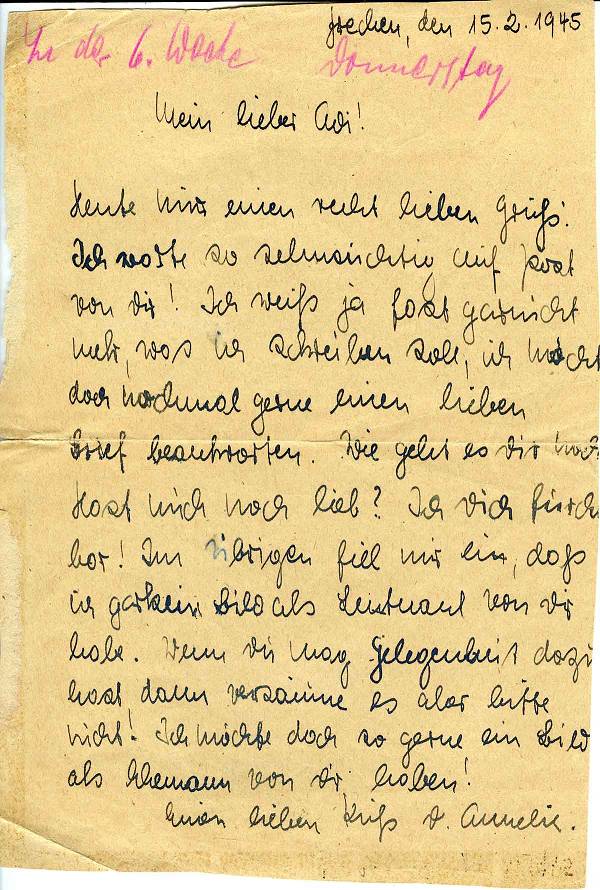 Frechen, den 15.2.1945
In der 6. Woche Donnerstag
Mein lieber Adi!
Heute nur einen recht lieben Gruß.
Ich warte so sehnsüchtig auf Post
von dir! Ich weiß ja fast garnicht
mehr, was ich schreiben soll, ich möcht
doch nochmal gerne einen lieben
Brief beantworten. Wie geht es dir noch?
Hast mich noch lieb? Ich dich furcht
bar! Im übrigen fiel mir ein, daß
ich garkein Bild als Leutnant von dir
habe. Wenn du mag Gelegenheit dazu
hast, dann versäume es aber bitte
nicht! Ich möchte doch so gerne ein Bild
als Ehemann von dir haben!
Einen lieben Kuß d. Annelie.